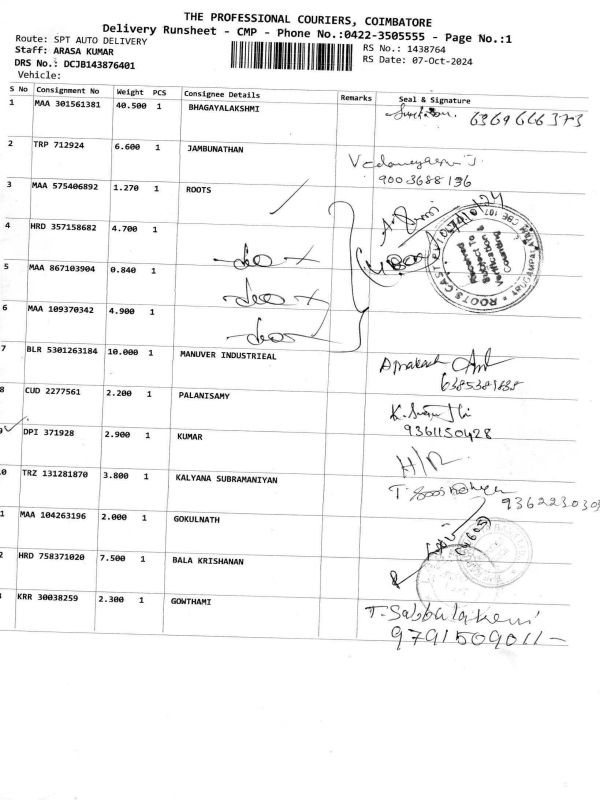 THE PROFESSIONAL COURIERS, COIMBATORE
Delivery Runsheet - CMP - Phone No.:0422-3505555 - Page No.:1
Route: SPT AUTO DELIVERY
RS No.: 1438764
Staff: ARASA KUMAR
RS Date: 07-Oct-2024
DRS No.: DCJB143876401
Vehicle:
S No Consignment No Weight PCS Consignee Details Remarks Seal & Signature
1 MAA 301561381 40.500 1 BHAGAYALAKSHMI
6369666373
2 TRP 712924 6.600 1 JAMBUNATHAN
9003688196
3 MAA 575406892 1.270 1 ROOTS
4 HRD 357158682 4.700 1
Received
Subject To
Verification &
Counting
5 MAA 867103904 0.840 1
6 MAA 109370342 4.900 1
7 BLR 5301263184 10.000 1 MANUVER INDUSTRIEAL
Aprakash
8 CUD 2277561 2.200 1 PALANISAMY
9361150428
9 DPI 371928 2.900 1 KUMAR
H/R
0 TRZ 131281870 3.800 1 KALYANA SUBRAMANIYAN
9362230303
1 MAA 104263196 2.000 1 GOKULNATH
2 HRD 758371020 7.500 1 BALA KRISHANAN
KRR 30038259 2.300 1 GOWTHAMI
9791509011-